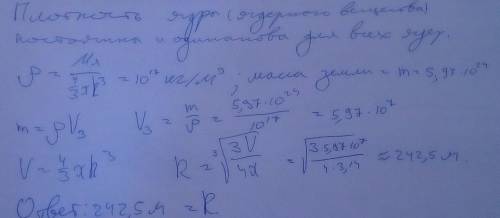 Плотность ядра (ядерного вещества)
постоянна и одинакова для всех ядер.
ρ = Mя / 4/3 πR³ = 10¹⁷ кг/м³ ; масса земли = m = 5,97·10²⁴
m = ρV₃ V₃ = m/ρ = 5,97·10²⁴ / 10¹⁷ = 5,97·10⁷
V = 4/3 πR³ R = ³√(3V / 4π) = ³√(3·5,97·10⁷ / 4·3,14) ≈ 242,5 м.
Ответ: 242,5 м = R